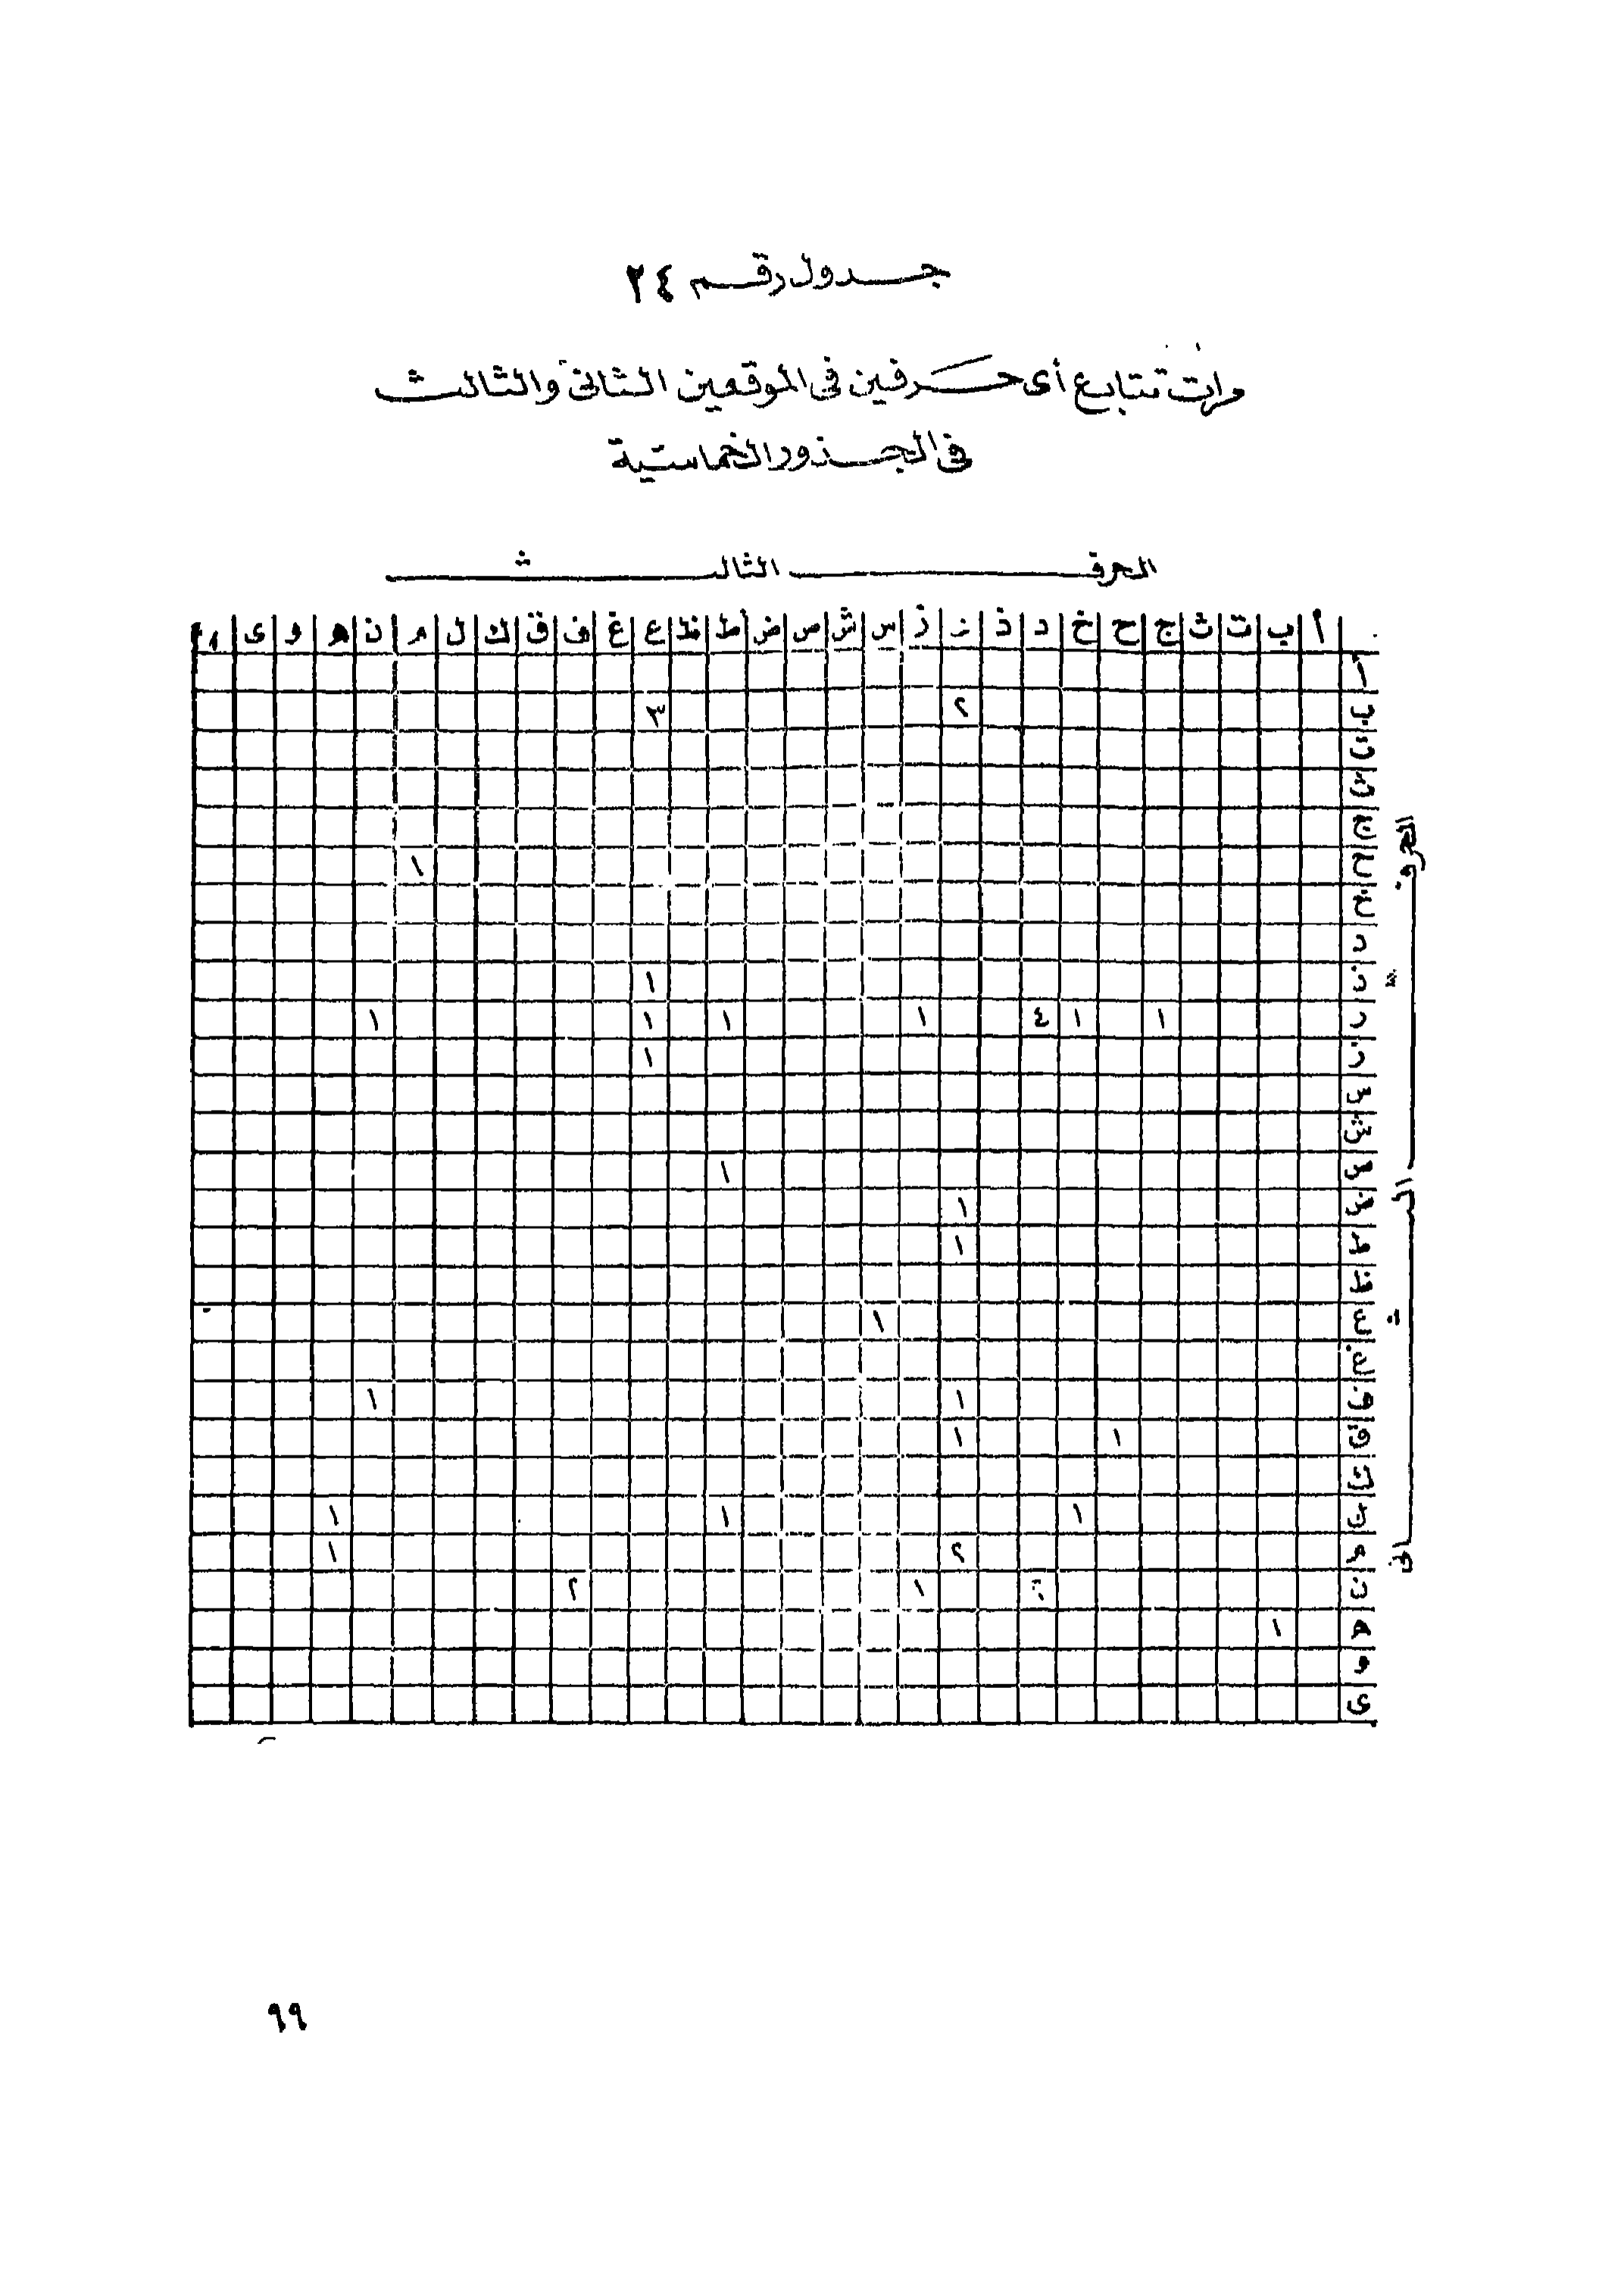 جدول رقم ٢٤
مرات تتابع أى حرفين فى الموقعين الثانى والثالث
فى الجذور الخماسية
الحرف الثالث
أ ب ت ث ج ح خ د ذ ر ز س ش ص ض ط ظ ع غ ف ق ك ل م ن ه و ى ء
الحرف الثانى
أ
ب ٢ ٣
ت
ث
ج
ح ١
خ
د
ذ ١
ر ١ ١ ٤ ١ ١ ١ ١
ز ١
س
ش
ص ١
ض ١
ط ١
ظ
ع ١
غ
ف ١ ١
ق ١ ١
ك
ل ١ ١ ١
م ٢ ١
ن ١ ٢
ه ١
و
ى
٩٩